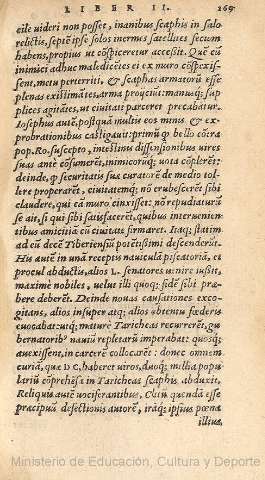 LIBER II. 269
cile uideri non posset, inanibus scaphis in salo
relictis, septẽ ipse solos inermes satellites secum
habens, propius ut cõspiceretur accessit. Quẽ cũ
inimici adhuc maledicẽtes ei ex muro cõspexis-
sent, metu perterriti, & scaphas armatorũ esse
plenas existimãtes, arma proijciũt: manusq; sup
plices agitãtes, ut ciuitati parceret precabãtur.
Iosephus autẽ, postquã multũ eos minis, & ex-
probrationibus castigauit: primũ ꝙ bello cõtra
pop. Ro. suscepto, intestinis dissensionibus uires
suas ante cõsumerẽt, inimicorũq; uota cõplerẽt:
deinde, ꝙ securitatis suæ curatorẽ de medio tol-
lere properarẽt, ciuitatemq; nõ erubescerẽt sibi
claudere, qui eã muro cinxisset: nõ repudiaturũ
se ait, si qui sibi satisfacerẽt, quibus interuenien
tibus amicitiã cũ ciuitate firmaret. Itaq; statim
ad eũ decẽ Tiberiensiũ potẽtissimi descenderũt.
His autẽ in unã receptis nauiculã piscatoriã, et
procul abductis, alios L. senatores uenire iussit,
maximè nobiles, uelut illi quoq; fidẽ sibi præ-
bere deberẽt. Deinde nouas causationes exco-
gitans, alios insuper atq; alios obtentu fœderis
euocabat: utq; maturè Taricheas recurrerẽt, gu
bernatoribꝰ nauiũ repletarũ imperabat: quosq;
auexissent, in carcerẽ collocarẽt: donec omnem
curiã, quæ DC. haberet uiros, duoq; millia popu
lariũ cõprehẽsa in Taricheas scaphis abduxit.
Reliquis autẽ uociferantibus, Clitũ quendã esse
præcipuũ defectionis autorẽ, iráq; ipsius pœna
illius,
Ministerio de Educación, Cultura y Deporte